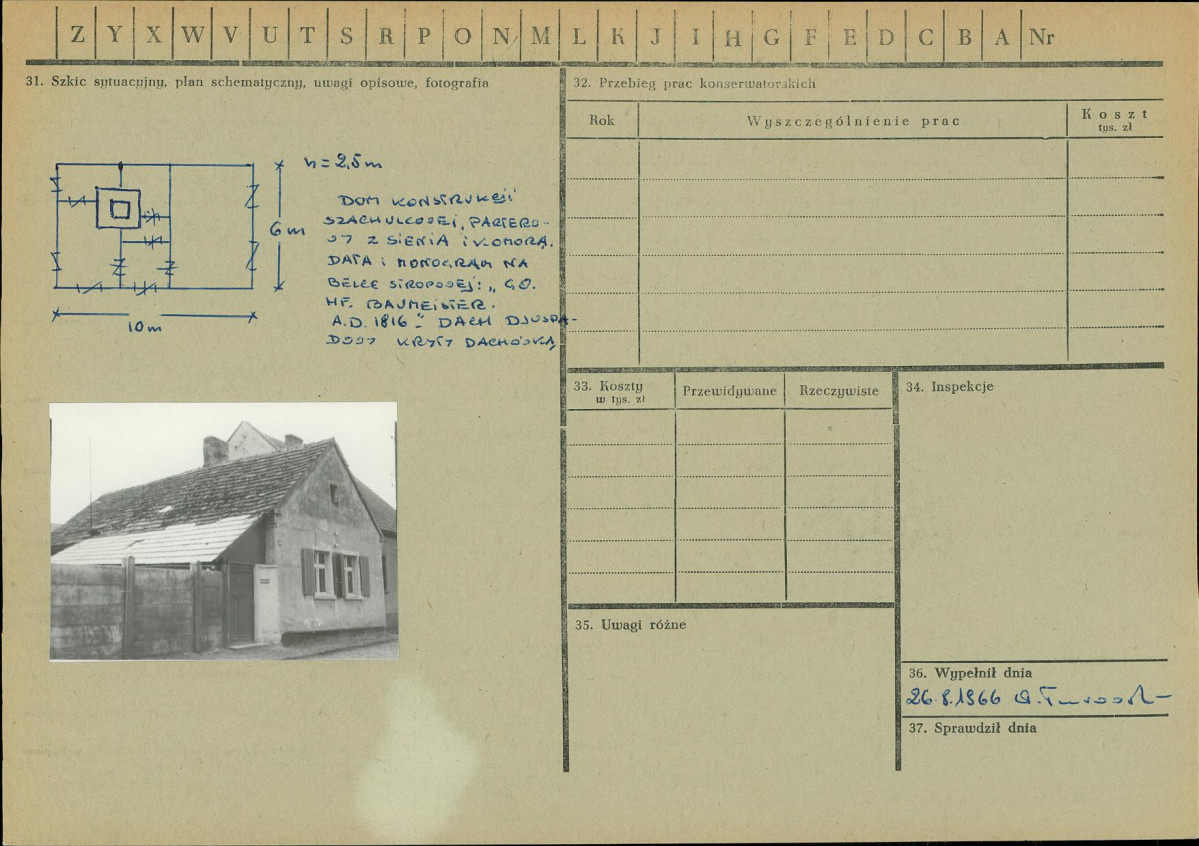 Z Y X W V U T S R P O N M L K J I H G F E D C B A Nr
31. Szkic sytuacyjny, plan schematyczny, uwagi opisowe, fotografia
h = 2,5 m
6 m
10 m
DOM KONSTRUKCJI
SZACHULCOWEJ, PARTERO-
WY Z SIENIĄ I KOMORĄ.
DATA I MONOGRAM NA
BELCE STROPOWEJ: „ G.O.
HF. BAUMEISTER.
A.D. 1816." DACH DWUSPA-
DOWY KRYTY DACHÓWKĄ
32. Przebieg prac konserwatorskich
Rok
Wyszczególnienie prac
Koszt
tys. zł
33. Koszty
w tys. zł
Przewidywane
Rzeczywiste
34. Inspekcje
35. Uwagi różne
36. Wypełnił dnia
26.8.1966
37. Sprawdził dnia